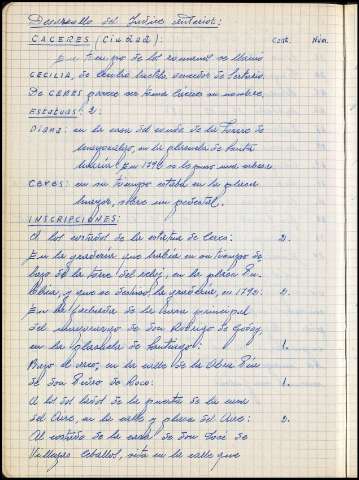 Desarrollo del Indice anterior:
CACERES (Ciudad): Cent. Núm.
En tiempo de los romanos se llamó
CECILIA, de Cecilio Metelo vencedor de Sertorio.
De CERES parece ser toma Cáceres su nombre.
ESTATUAS 2:
DIANA: en la casa del conde de la Torre de
Mayoralgo, en la plazuela de Santa
María. En 1796 se le puso una cabeza
CERES: en su tiempo estaba en la plaza
Mayor, sobre un pedestal.
INSCRIPCIONES:
A los costados de la estatua de Ceres: 2.
En la gradería que había en su tiempo de-
bajo de la torre del reloj, en la plaza Pú-
blica, y que se deshizo la gradería, en 1796: 2.
En la fachada de la puerta principal
del mayorazgo de don Rodrigo de Godoy,
en la plazuela de Santiago: 1.
Bajo el arco, en la calle de la Obra Pía
de don Pedro de Roco: 1.
A los dos lados de la puerta de la casa
del Aire, en la calle y plaza del Aire: 2.
Al costado de la casa de don José de
Vallazas Ceballos, sita en la calle que